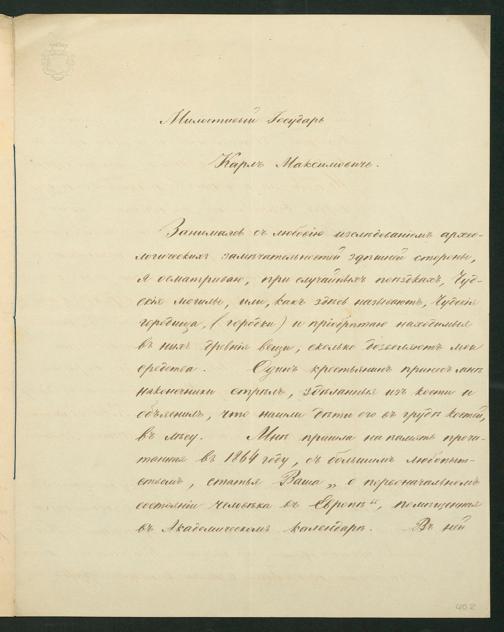 Милостивый Государь
Карлъ Максимовичъ.
Занимаясь съ любовію изслѣдованіемъ архео-
логическихъ замѣчательностей здѣшней стороны,
я осматриваю, при случайныхъ поѣздкахъ, Чуд-
скія могилы, или, какъ здѣсь называютъ, Чудскія
городища, (городки) и пріобрѣтаю находимыя
въ нихъ древнія вещи, сколько дозволяютъ мои
средства. Одинъ крестьянинъ принесъ мнѣ
наконечники стрѣлъ, здѣланныя изъ кости и
объяснилъ, что нашли ихъ въ грудѣ костей,
въ лѣсу. Мнѣ пришла на память прочи-
танная въ 1864 году, съ большимъ любопыт-
ствомъ, статья Ваша „о первоначальномъ
состояніи человѣка въ Европѣ“, помѣщенная
въ Академическомъ календарѣ. Въ ней
402